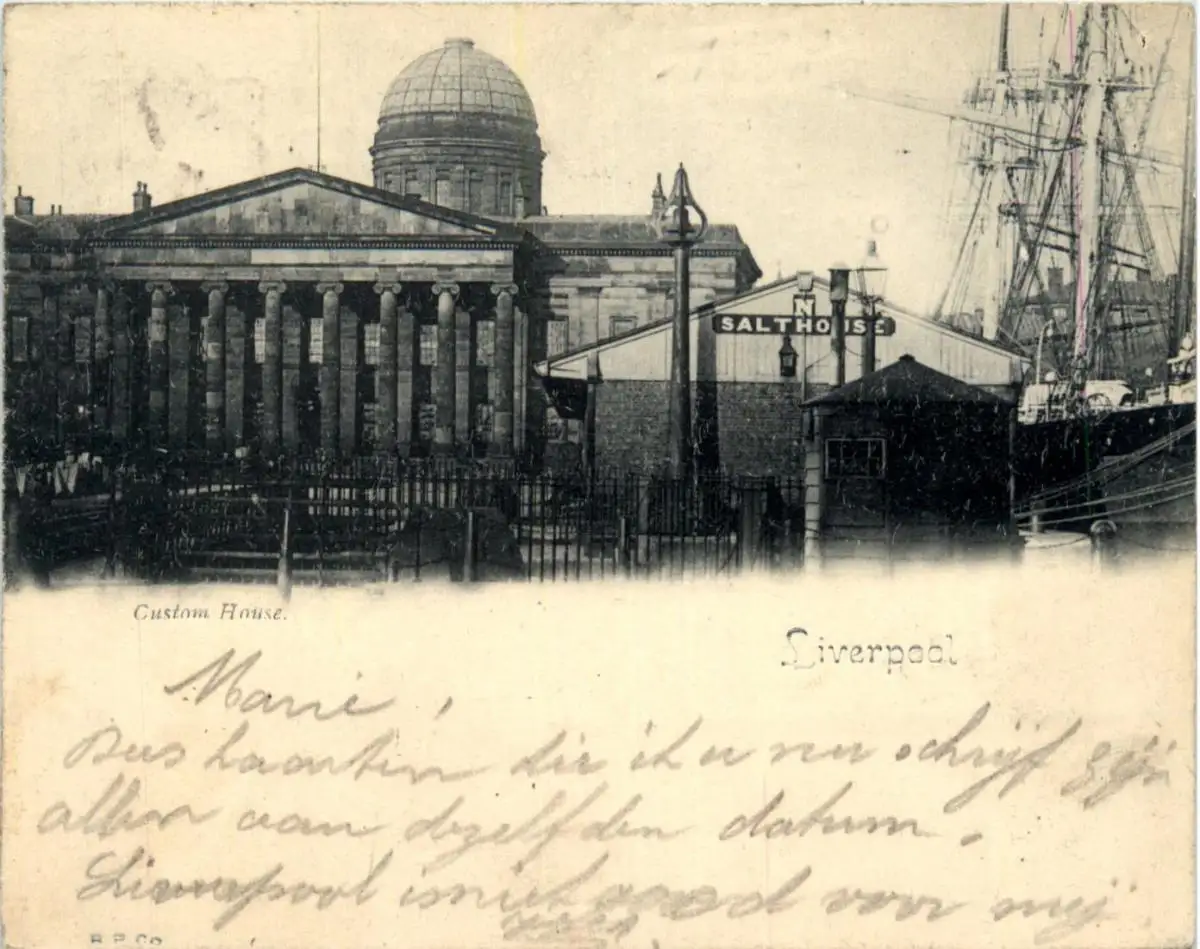 N
SALTHOUSE
Custom House.
Liverpool
Marie,
Deus kaarten die ik u nu schrijf zijn
allen van dezelfden datum.
Liverpool is niet goed voor mij
R.P.Co